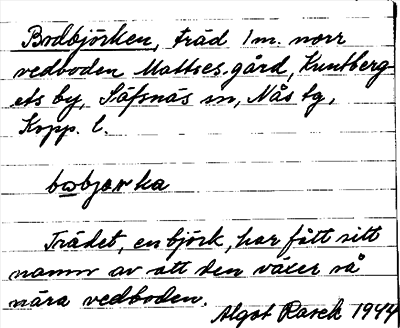 Bodbjörken, träd 1 m. norr
vedboden Mattses gård, Kuntberg-
ets by, Säfsnäs sn, Nås tg,
Kopp. l.
bωbjœrka
Trädet, en björk, har fått sitt
namn av att den växer så
nära vedboden.
Algot Rasck 1944